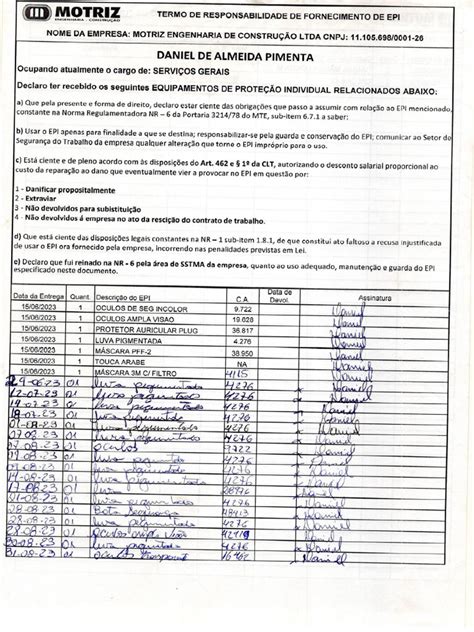 MOTRIZ
ENGENHARIA E CONSTRUÇÃO
TERMO DE RESPONSABILIDADE DE FORNECIMENTO DE EPI
NOME DA EMPRESA: MOTRIZ ENGENHARIA DE CONSTRUÇÃO LTDA CNPJ: 11.105.698/0001-26
DANIEL DE ALMEIDA PIMENTA
Ocupando atualmente o cargo de: SERVIÇOS GERAIS
Declaro ter recebido os seguintes EQUIPAMENTOS DE PROTEÇÃO INDIVIDUAL RELACIONADOS ABAIXO:
a) Que pela presente e forma de direito, declaro estar ciente das obrigações que passo a assumir com relação ao EPI mencionado,
constante na Norma Regulamentadora NR – 6 da Portaria 3214/78 do MTE, sub-item 6.7.1 a saber:
b) Usar o EPI apenas para finalidade a que se destina; responsabilizar-se pela guarda e conservação do EPI; comunicar ao Setor de
Segurança do Trabalho da empresa qualquer alteração que torne o EPI impróprio para o uso.
c) Está ciente e de pleno acordo com às disposições do Art. 462 e § 1º da CLT, autorizando o desconto salarial proporcional ao
custo da reparação ao dano que eventualmente vier a provocar no EPI em questão por:
1 - Danificar propositalmente
2 - Extraviar
3 - Não devolvidos para subistituição
4 - Não devolvidos á empresa no ato da rescição do contrato de trabalho.
d) Que está ciente das disposições legais constantes na NR – 1 sub-item 1.8.1, de que constitui ato faltoso a recusa injustificada
de usar o EPI ora fornecido pela empresa, incorrendo nas penalidades previstas em Lei.
e) Declaro que fui reinado na NR - 6 pela área de SSTMA da empresa, quanto ao uso adequado, manutenção e guarda do EPI
especificado neste documento.
Data da Entrega Quant. Descrição do EPI C.A. Data de Devol. Assinatura
15/06/2023 1 OCULOS DE SEG INCOLOR 9.722 Daniel
15/06/2023 1 OCULOS AMPLA VISAO 19.628 Daniel
15/06/2023 1 PROTETOR AURICULAR PLUG 36.817 Daniel
15/06/2023 1 LUVA PIGMENTADA 4.276 Daniel
15/06/2023 1 MÁSCARA PFF-2 38.950 Daniel
15/06/2023 1 TOUCA ARABE NA Daniel
15/06/2023 1 MÁSCARA 3M C/ FILTRO 4115 Daniel
01 luva pigmentada 4276 Daniel
12-07-23 01 luva pigmentada 4276 Daniel
14-07-23 luva pigmentada 4276 Daniel
18-07-23 01 luva pigmentada 4276 Daniel
01-08-23 01 luva pigmentada 4276 Daniel
01 luva pigmentada 4276 Daniel
08-23 01 oculos Daniel
08-23 01 luva pigmentada 4276 Daniel
14-08-23 01 luva 4276 Daniel
17-08-23 01 luva Daniel
08-23 01 luva pigmentada 4276 Daniel
28-08-23 01 Bota Daniel
28-08-23 01 luva pigmentada 4276 Daniel
08-23 01 oculos ampla visão Daniel
30-08-23 01 luva pigmentada 4276 Daniel
31-08-23 01 oculos Daniel